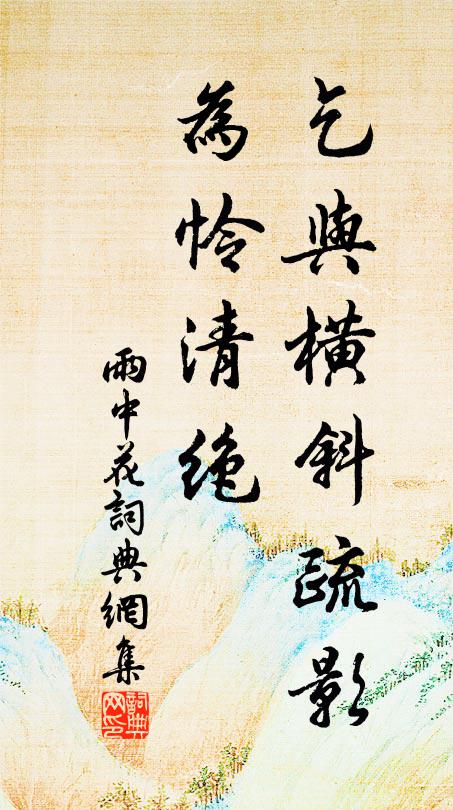 乞與橫斜疏影
為怜清絶
雨中花詞典網集
詞典
网印